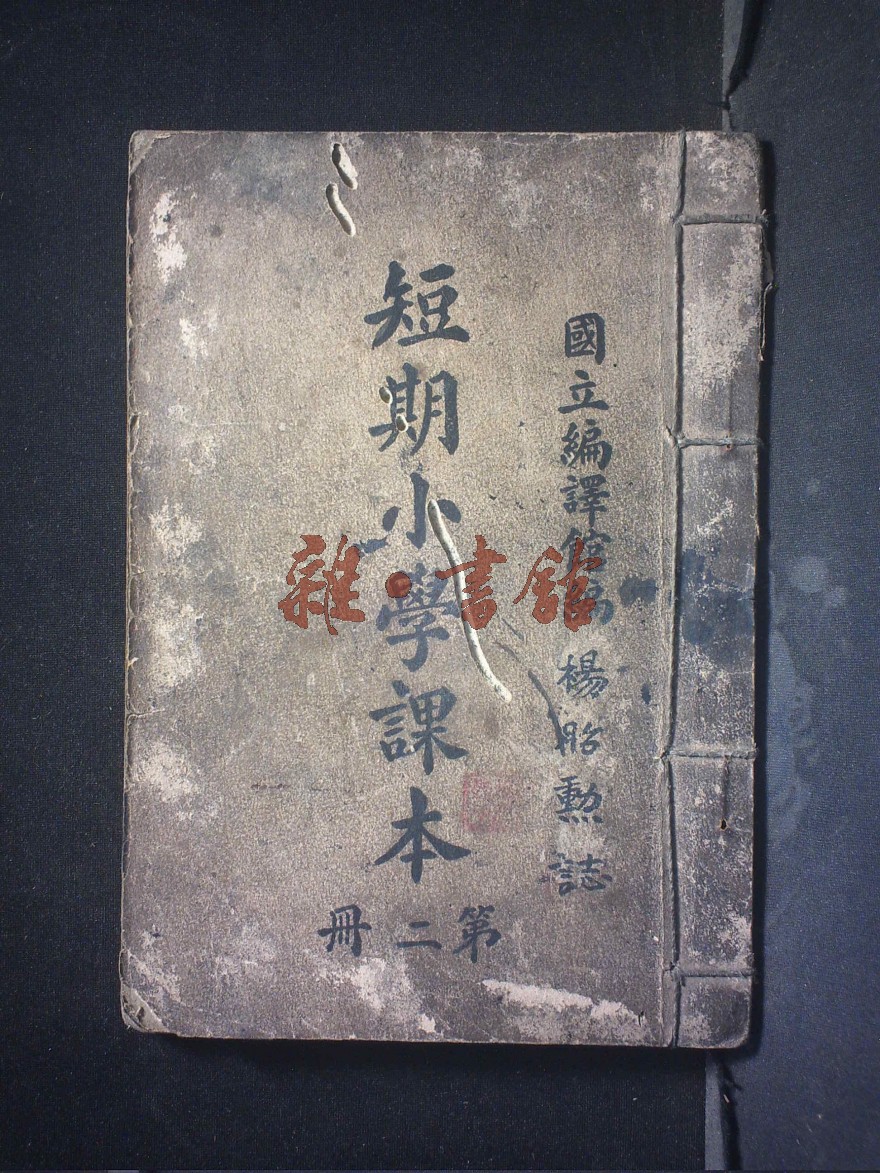 國立編譯館 楊貽勳誌
短期小學課本
第二冊
雜·書館